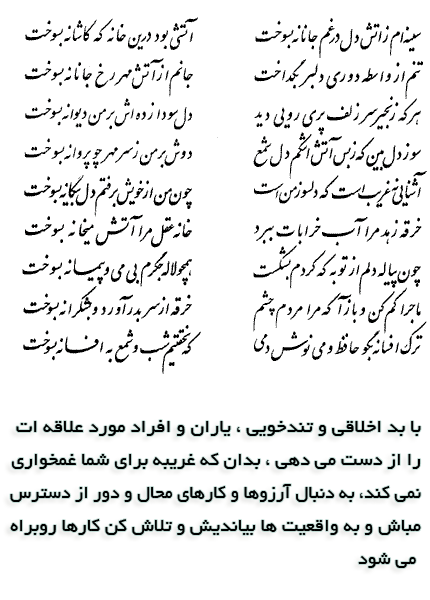 سینه‌ام ز آتش دل در غم جانانه بسوخت آتشی بود درین خانه که کاشانه بسوخت
تنم از واسطه دوری دلبر بگداخت جانم از آتش مهر رخ جانانه بسوخت
هر که زنجیر سر زلف پری رویی دید دل سودا زده‌اش بر من دیوانه بسوخت
سوز دل بین که ز بس آتش اشکم دل شمع دوش بر من ز سر مهر چو پروانه بسوخت
آشنایی غریب است که دلسوز من است چون من از خویش برفتم دل بیگانه بسوخت
خرقه زهد مرا آب خرابات ببرد خانه عقل مرا آتش میخانه بسوخت
چون پیاله دلم از توبه که کردم بشکست همچو لاله جگرم بی می و پیمانه بسوخت
ماجرا کم کن و بازآ که مرا مردم چشم خرقه از سر بدر آورد و بشکرانه بسوخت
ترک افسانه بگو حافظ و می نوش دمی که نخفتیم شب و شمع به افسانه بسوخت
با بد اخلاقی و تندخویی ، یاران و افراد مورد علاقه ات
را از دست می دهی ، بدان که غریبه برای شما غمخواری
نمی کند، به دنبال آرزوها و کارهای محال و دور از دسترس
مباش و به واقعیت ها بیاندیش و تلاش کن کارها روبراه
می شود